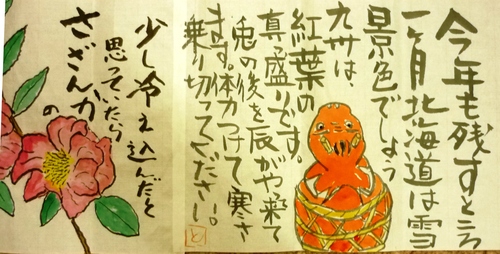 今年も残すところ
一ヶ月北海道は雪
景色でしょう
九州は、
紅葉の
真っ盛りです。
兎の後を辰がや乗て
ます。体力つけて寒さ
乗り切ってください。
少し冷え込んだと
思っていたら
さざんかの